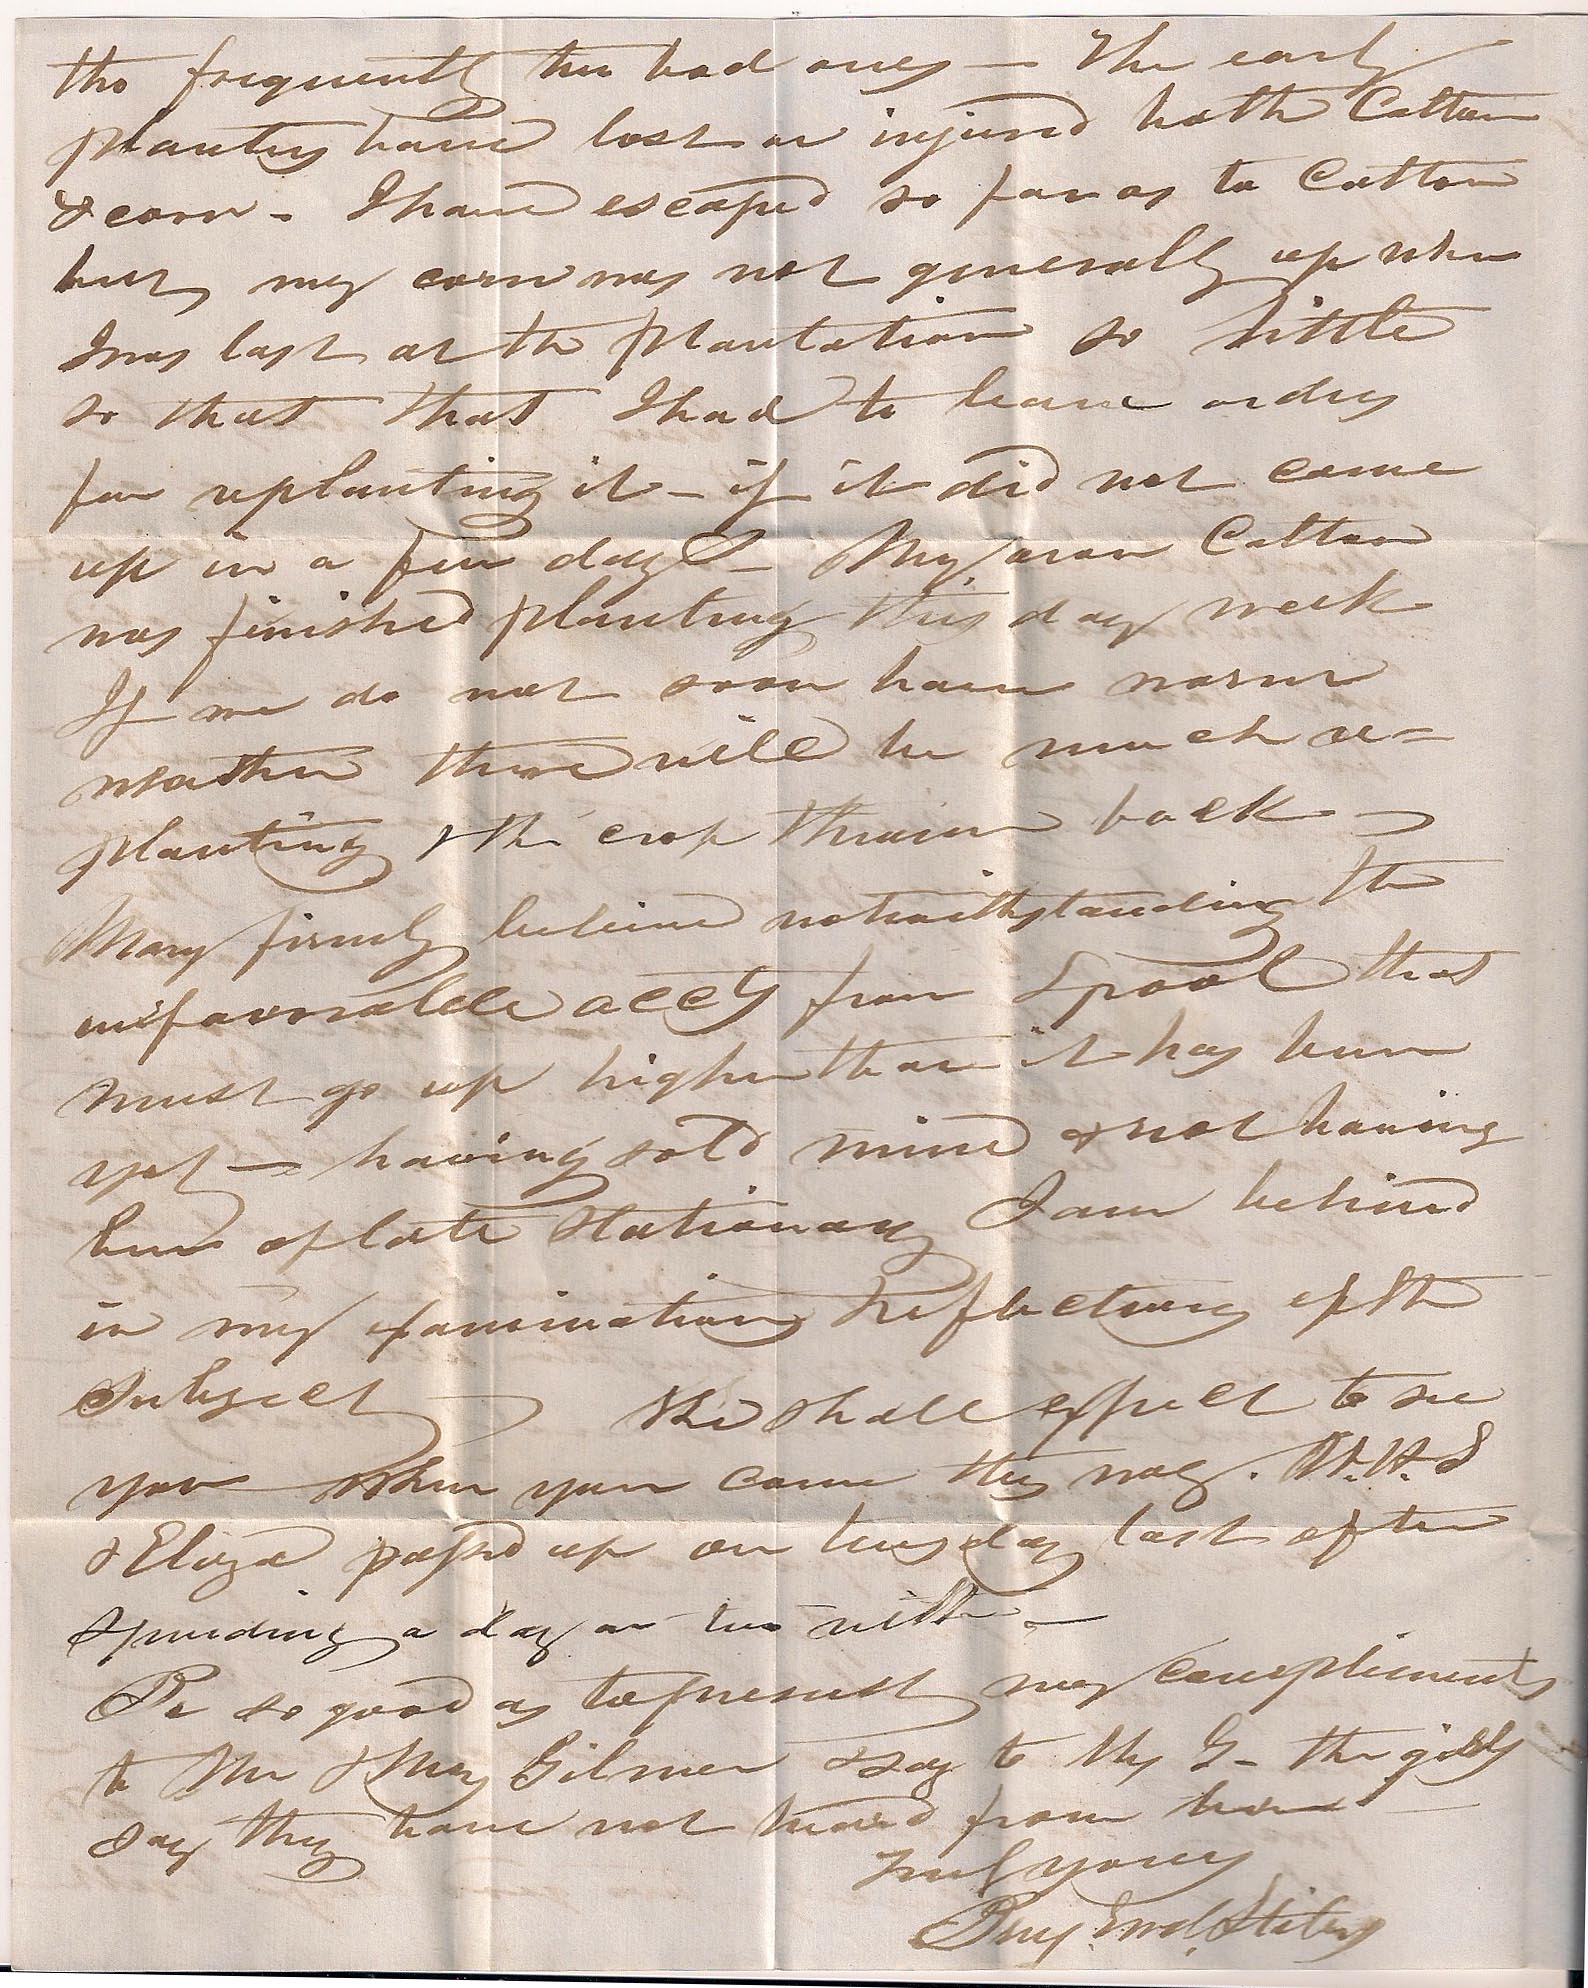 tho frequently the bad ones — The early
planters have lost or injured both Cotton
& corn - I have escaped so far as to Cotton
but my corn was not generally up when
I was last at the plantation so little
so that that I had to leave orders
for replanting it - if it did not come
up in a few days - My own Cotton
was finished planting this day week
If we do not soon have warm
weather there will be much re=
planting & the crop thrown back —
Many firmly believe notwithstanding the
unfavorable accts from Lpool that
must go up higher than it has been
yet — having sold mine & not having
been of late Stationary I am behind
in my examination & reflections of the
Subject — We shall expect to see
you when you come this way. W.H.S
& Eliza passed up on tuesday last after
spending a day or two with —
Be so good as to present my compliments
to Mr & Mrs Gilmer & say to Mrs G - the girls
say they have not heard from her
Truly yours
Benj. Edwd. Stiles